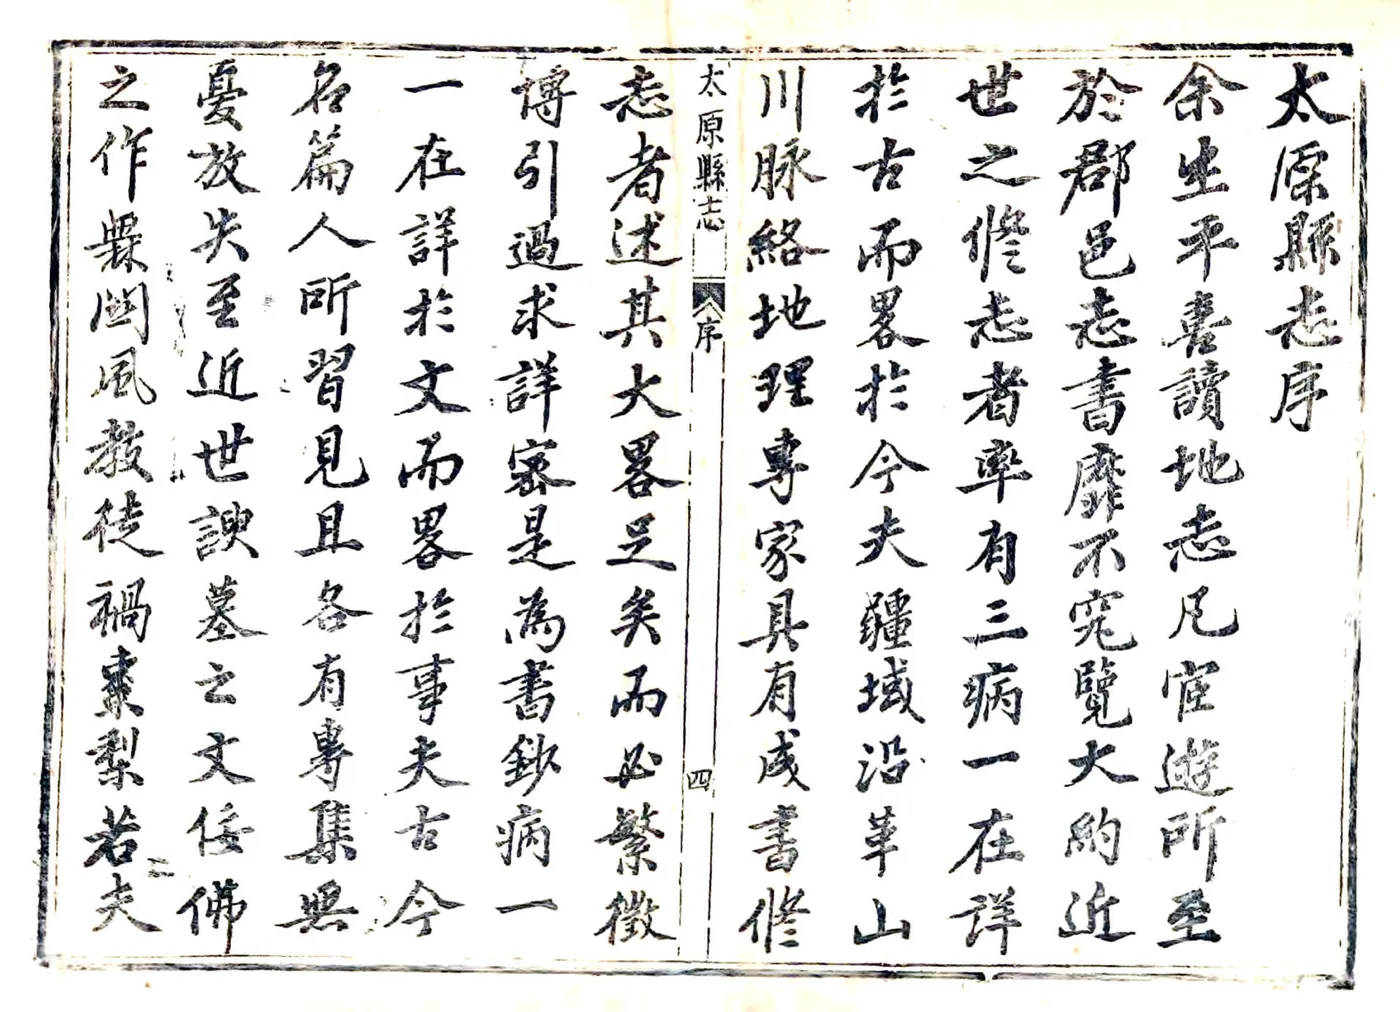 太原縣志序
余生平喜讀地志凡宦遊所至
於郡邑志書靡不究覽大約近
世之修志者率有三病一在詳
於古而畧於今夫疆域沿革山
川脉絡地理專家具有成書修
太原縣志 序 四
志者述其大畧足矣而必繁徵
博引過求詳密是為書鈔病一
一在詳於文而畧於事夫古今
名篇人所習見且各有專集無
憂放失至近世諛墓之文佞佛
之作無關風教徒禍棗梨若夫